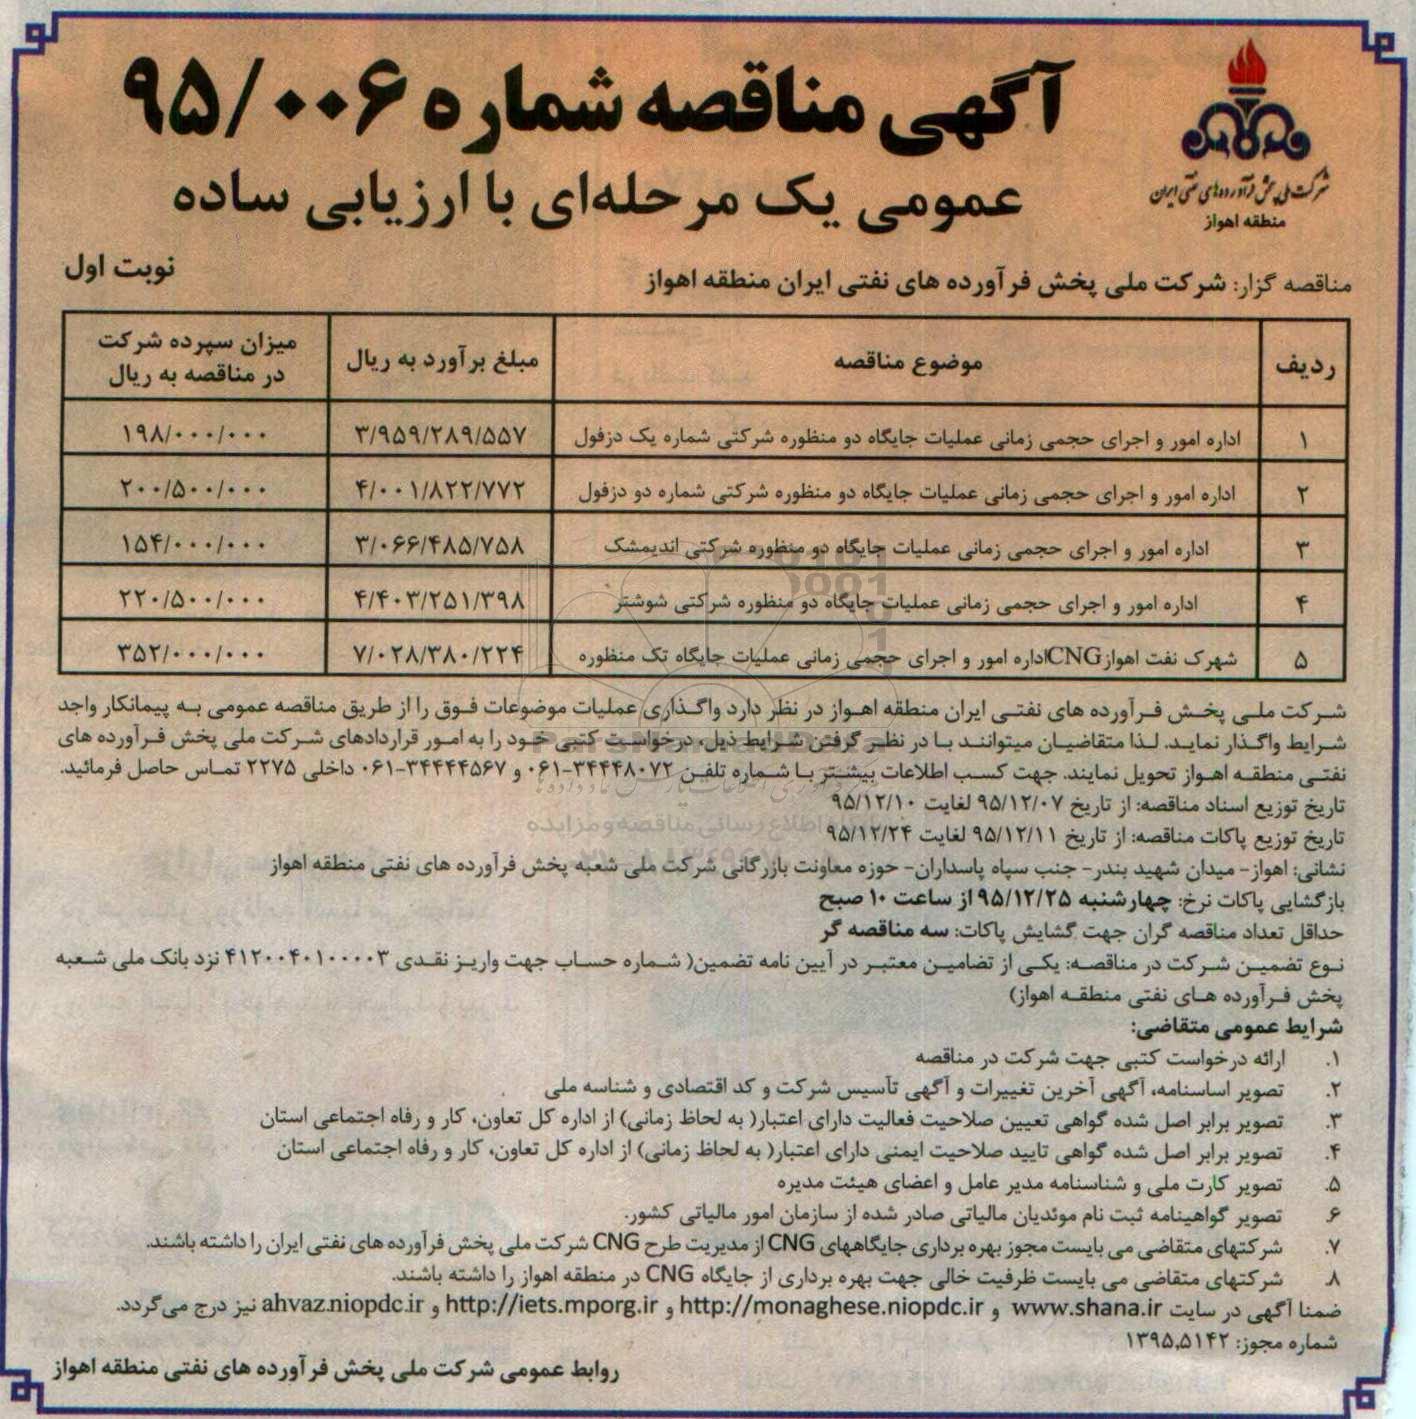 آگهی مناقصه شماره ۹۵/۰۰۶
عمومی یک مرحله‌ای با ارزیابی ساده
شرکت ملی پخش فرآورده‌های نفتی ایران
منطقه اهواز
نوبت اول
مناقصه گزار: شرکت ملی پخش فرآورده های نفتی ایران منطقه اهواز
ردیف موضوع مناقصه مبلغ برآورد به ریال میزان سپرده شرکت در مناقصه به ریال
۱ اداره امور و اجرای حجمی زمانی عملیات جایگاه دو منظوره شرکتی شماره یک دزفول ۳/۹۵۹/۲۸۹/۵۵۷ ۱۹۸/۰۰۰/۰۰۰
۲ اداره امور و اجرای حجمی زمانی عملیات جایگاه دو منظوره شرکتی شماره دو دزفول ۴/۰۰۱/۸۲۲/۷۷۲ ۲۰۰/۵۰۰/۰۰۰
۳ اداره امور و اجرای حجمی زمانی عملیات جایگاه دو منظوره شرکتی اندیمشک ۳/۰۶۶/۴۸۵/۷۵۸ ۱۵۴/۰۰۰/۰۰۰
۴ اداره امور و اجرای حجمی زمانی عملیات جایگاه دو منظوره شرکتی شوشتر ۴/۴۰۳/۲۵۱/۳۹۸ ۲۲۰/۵۰۰/۰۰۰
۵ شهرک نفت اهوازCNGاداره امور و اجرای حجمی زمانی عملیات جایگاه تک منظوره ۷/۰۲۸/۳۸۰/۲۲۴ ۳۵۲/۰۰۰/۰۰۰
شرکت ملی پخش فرآورده های نفتی ایران منطقه اهواز در نظر دارد واگذاری عملیات موضوعات فوق را از طریق مناقصه عمومی به پیمانکار واجد
شرایط واگذار نماید. لذا متقاضیان میتوانند با در نظر گرفتن شرایط ذیل، درخواست کتبی خود را به امور قراردادهای شرکت ملی پخش فرآورده های
نفتی منطقه اهواز تحویل نمایند. جهت کسب اطلاعات بیشتر با شماره تلفن ۳۴۴۴۸۰۷۲-۰۶۱ و ۳۴۴۴۴۵۶۷-۰۶۱ داخلی ۲۲۷۵ تماس حاصل فرمائید.
تاریخ توزیع اسناد مناقصه: از تاریخ ۹۵/۱۲/۰۷ لغایت ۹۵/۱۲/۱۰
تاریخ توزیع پاکات مناقصه: از تاریخ ۹۵/۱۲/۱۱ لغایت ۹۵/۱۲/۲۴
نشانی: اهواز- میدان شهید بندر- جنب سپاه پاسداران- حوزه معاونت بازرگانی شرکت ملی شعبه پخش فرآورده های نفتی منطقه اهواز
بازگشایی پاکات نرخ: چهارشنبه ۹۵/۱۲/۲۵ از ساعت ۱۰ صبح
حداقل تعداد مناقصه گران جهت گشایش پاکات: سه مناقصه گر
نوع تضمین شرکت در مناقصه: یکی از تضامین معتبر در آیین نامه تضمین( شماره حساب جهت واریز نقدی ۴۱۲۰۰۴۰۱۰۰۰۰۳ نزد بانک ملی شعبه
پخش فرآورده های نفتی منطقه اهواز)
شرایط عمومی متقاضی:
۱. ارائه درخواست کتبی جهت شرکت در مناقصه
۲. تصویر اساسنامه، آگهی آخرین تغییرات و آگهی تأسیس شرکت و کد اقتصادی و شناسه ملی
۳. تصویر برابر اصل شده گواهی تعیین صلاحیت فعالیت دارای اعتبار( به لحاظ زمانی) از اداره کل تعاون، کار و رفاه اجتماعی استان
۴. تصویر برابر اصل شده گواهی تایید صلاحیت ایمنی دارای اعتبار( به لحاظ زمانی) از اداره کل تعاون، کار و رفاه اجتماعی استان
۵. تصویر کارت ملی و شناسنامه مدیر عامل و اعضای هیئت مدیره
۶. تصویر گواهینامه ثبت نام موئدیان مالیاتی صادر شده از سازمان امور مالیاتی کشور.
۷. شرکتهای متقاضی می بایست مجوز بهره برداری جایگاههای CNG از مدیریت طرح CNG شرکت ملی پخش فرآورده های نفتی ایران را داشته باشند.
۸. شرکتهای متقاضی می بایست ظرفیت خالی جهت بهره برداری از جایگاه CNG در منطقه اهواز را داشته باشند.
ضمنا آگهی در سایت www.shana.ir و http://monaghese.niopdc.ir و http://iets.mporg.ir و ahvaz.niopdc.ir نیز درج می‌گردد.
شماره مجوز: ۱۳۹۵,۵۱۴۲
روابط عمومی شرکت ملی پخش فرآورده های نفتی منطقه اهواز